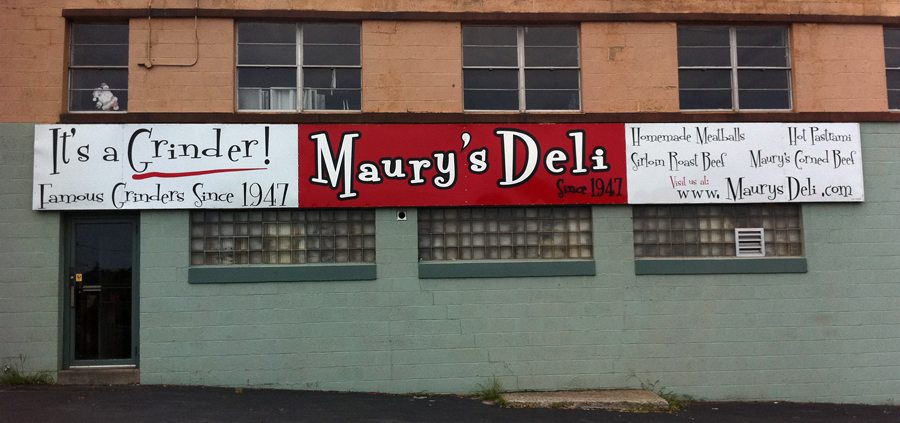 It's a Grinder!
Famous Grinders Since 1947
Maury's Deli
Since 1947
Homemade Meatballs Hot Pastrami
Sirloin Roast Beef Maury's Corned Beef
Visit us at:
www. MaurysDeli .com